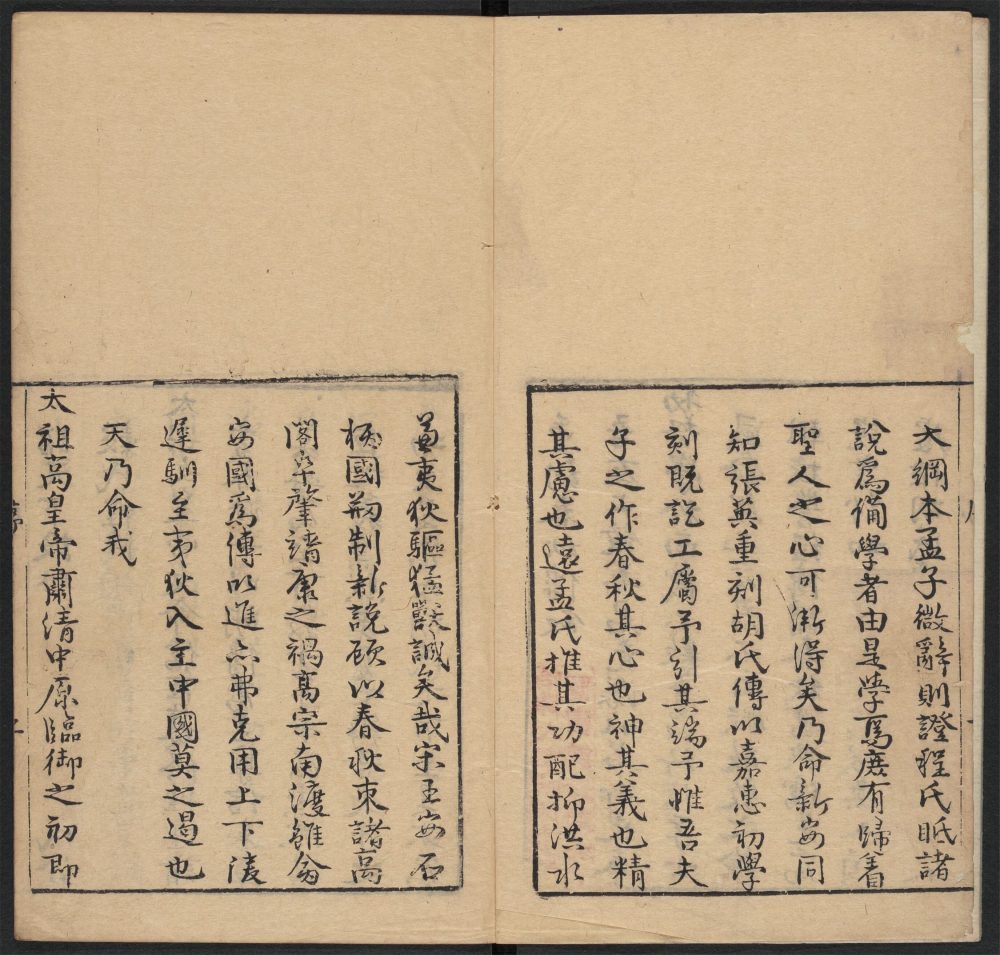 大綱本孟子微辭則證程氏眂諸
說爲備學者由是學焉庶有歸着
聖人之心可漸得矣乃命新安同
知張英重刻胡氏傳以嘉惠初學
刻既訖工屬予引其端予惟吾夫
子之作春秋其心也神其義也精
其慮也遠孟氏推其功配抑洪水
兼夷狄驅猛獸誠矣哉宋王安石
柄國剏制新說顧以春秋束諸高
閣卒肇靖康之禍高宗南渡雖俞
安國爲傳以進亦弗克用上下陵
遲馴至夷狄入主中國莫之遏也
天乃命我
太祖高皇帝肅清中原臨御之初即